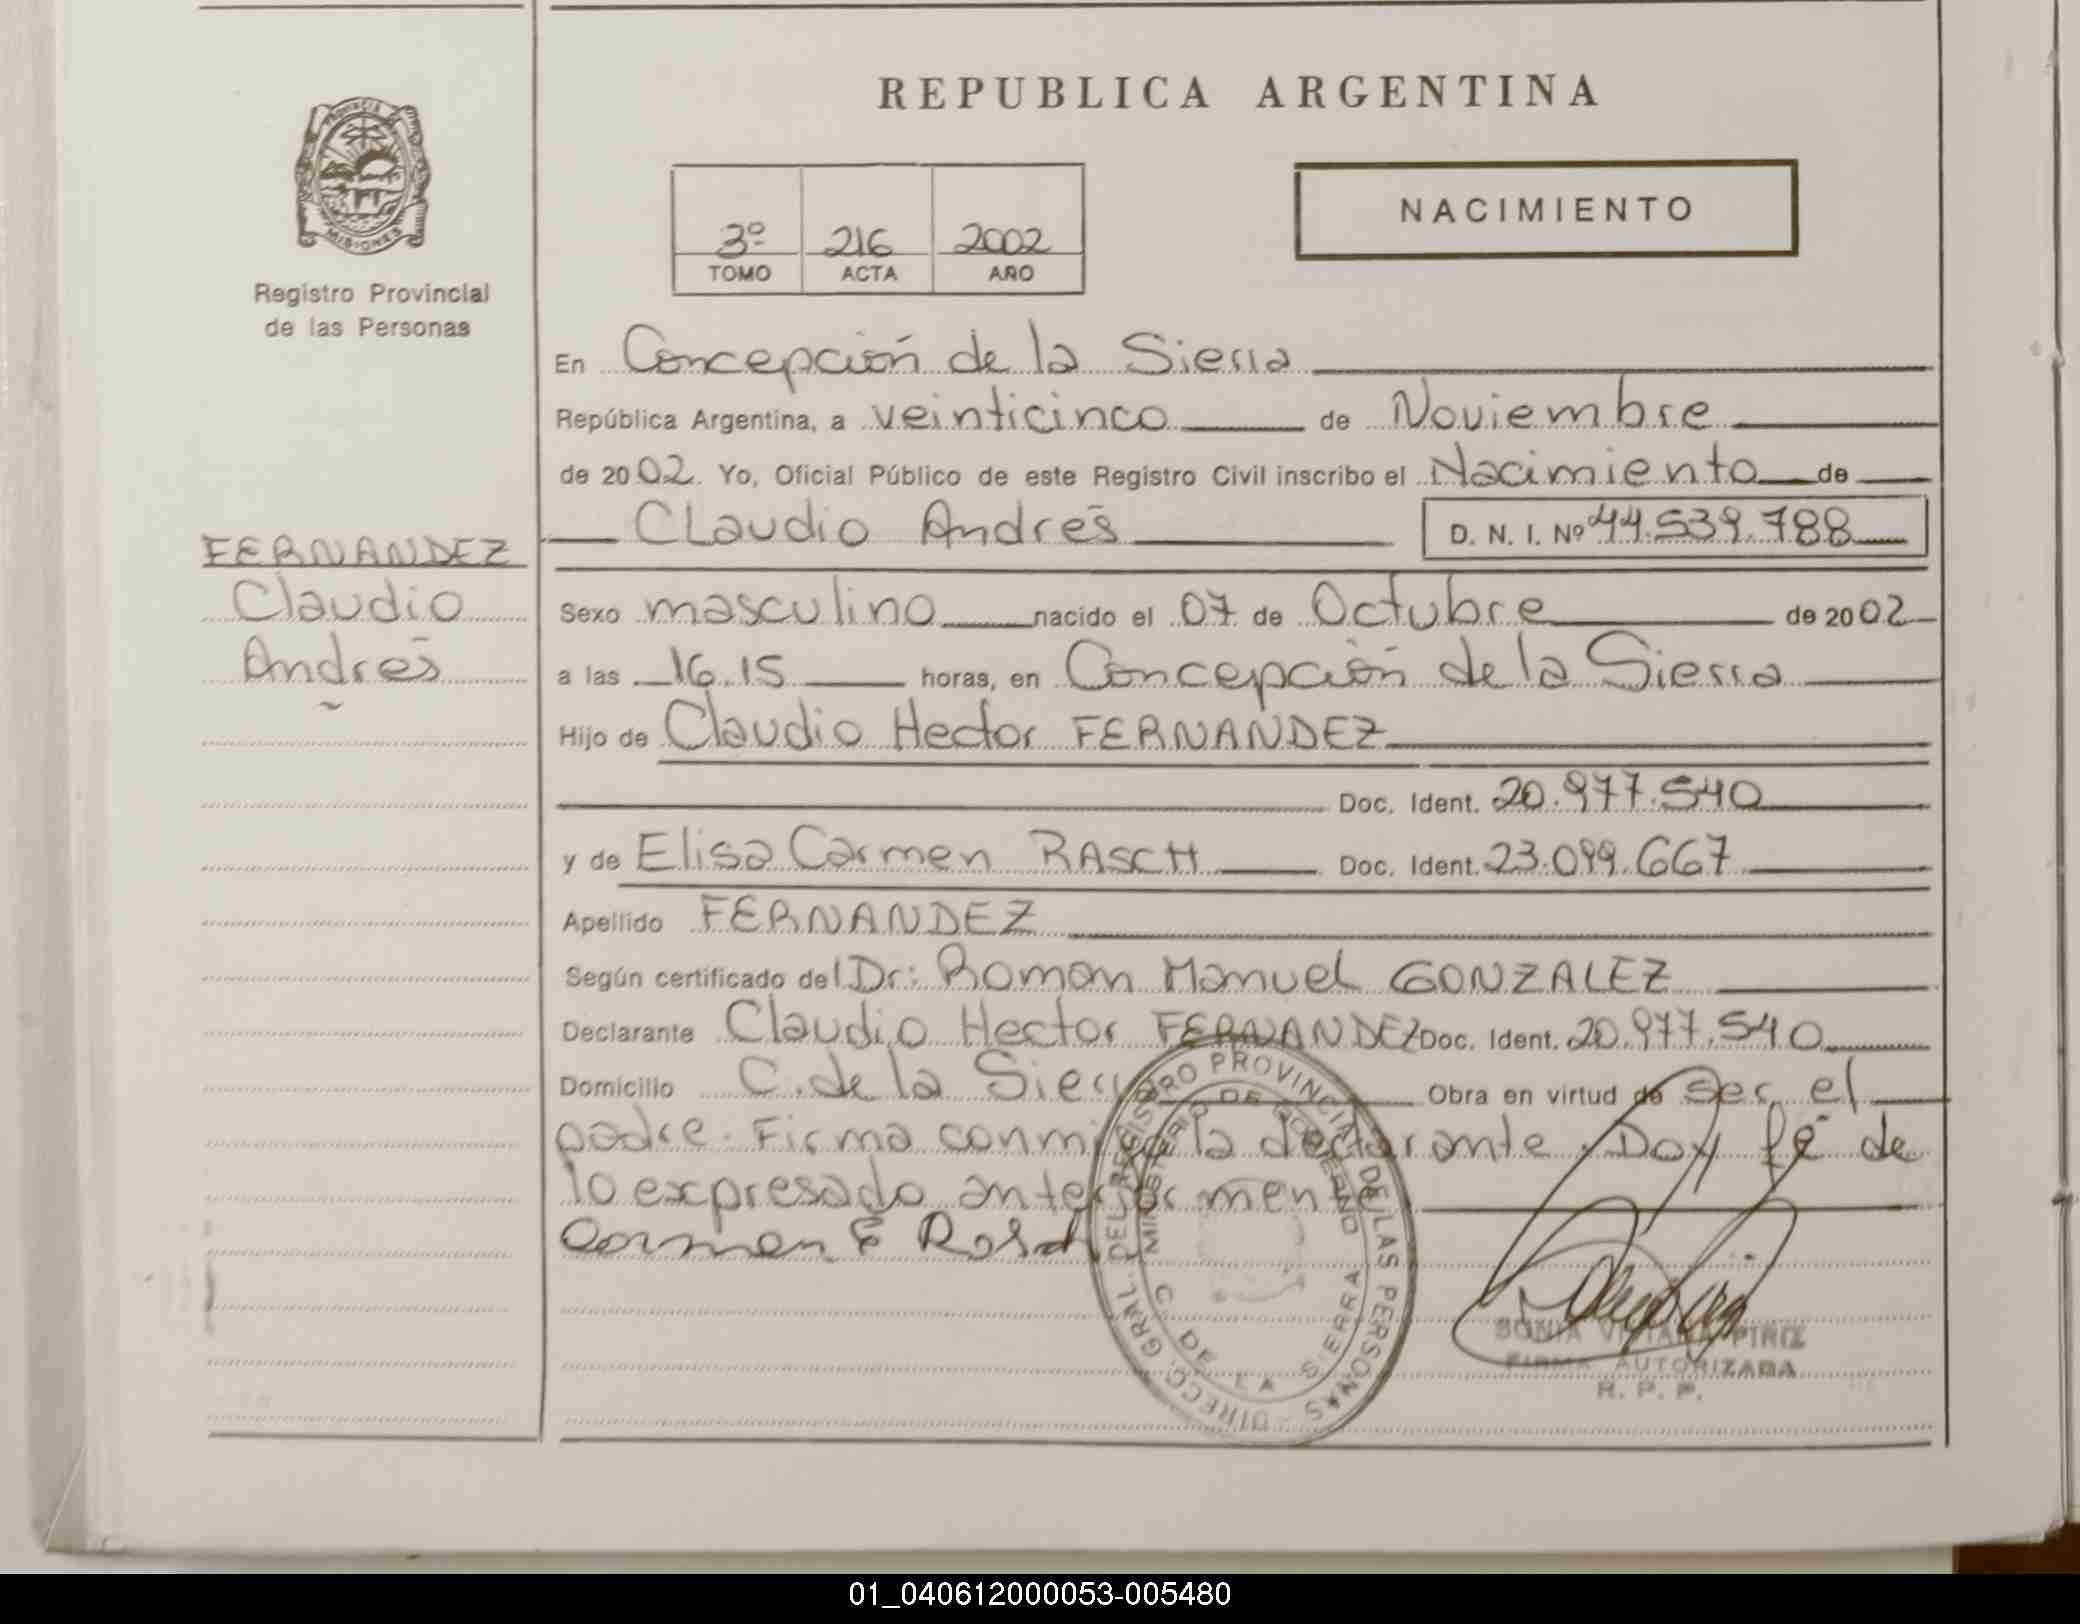 REPUBLICA ARGENTINA
PROVINCIA DE
MISIONES
Registro Provincial
de las Personas
3º 216 2002
TOMO ACTA AÑO
NACIMIENTO
En Concepción de la Sierra
República Argentina, a veinticinco de Noviembre
de 2002. Yo, Oficial Público de este Registro Civil inscribo el Nacimiento de
Claudio Andrés D. N. I. Nº 44.539.788
FERNANDEZ
Claudio
Andrés
Sexo masculino nacido el 07 de Octubre de 2002
a las 16.15 horas, en Concepción de la Sierra
Hijo de Claudio Hector FERNANDEZ
Doc. Ident. 20.977.540
y de Elisa Carmen RASCH Doc. Ident. 23.099.667
Apellido FERNANDEZ
Según certificado del Dr: Roman Manuel GONZALEZ
Declarante Claudio Hector FERNANDEZ Doc. Ident. 20.977.540
Domicilio C. de la Sierra Obra en virtud de ser el
padre. Firma conmigo la declarante. Doy fé de
lo expresado anteriormente
Carmen E Rasch
DIRECC. GRAL. DEL REGISTRO PROVINCIAL DE LAS PERSONAS
MINISTERIO DE GOBIERNO
C. DE LA SIERRA
SONIA PIRIZ
FIRMA AUTORIZADA
R. P. P.
01_040612000053-005480